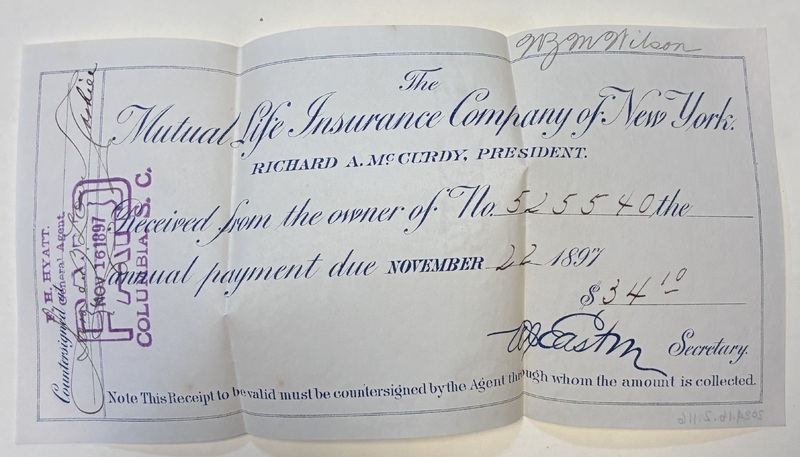 W B M Wilson
The
Mutual Life Insurance Company of New York.
RICHARD A. McCURDY, PRESIDENT.
Received from the owner of No. 525540 the
annual payment due NOVEMBER 22 1897
$34 10
Secretary.
Note This Receipt to be valid must be countersigned by the Agent through whom the amount is collected.
Countersigned at
F. H. HYATT.
General Agent
Cashier
PAID
NOV 16 1897
COLUMBIA, S. C.